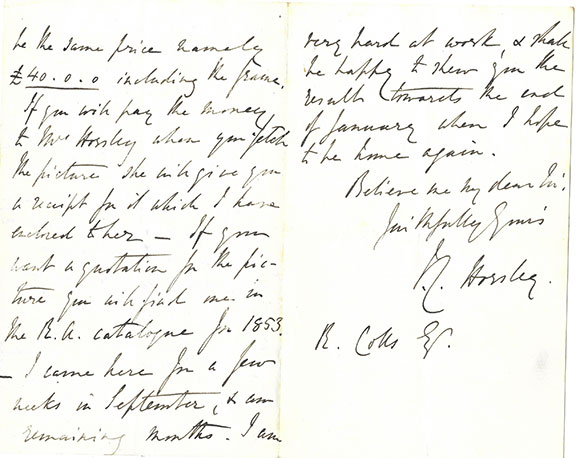 be the same price namely
£40.0.0 including the frame.
If you will pay the money
to Mrs Horsley when you fetch
the picture she will give you
a receipt for it which I have
enclosed to her — If you
want a quotation for the pic-
ture you will find one in
the R.A. catalogue for 1853.
— I came here for a few
weeks in September, & am
remaining months. I am
very hard at work, & shall
be happy to shew you the
results towards the end
of January when I hope
to be home again.
Believe me my dear Sir.
Faithfully Yours
J.C. Horsley.
R. Colls Esq.